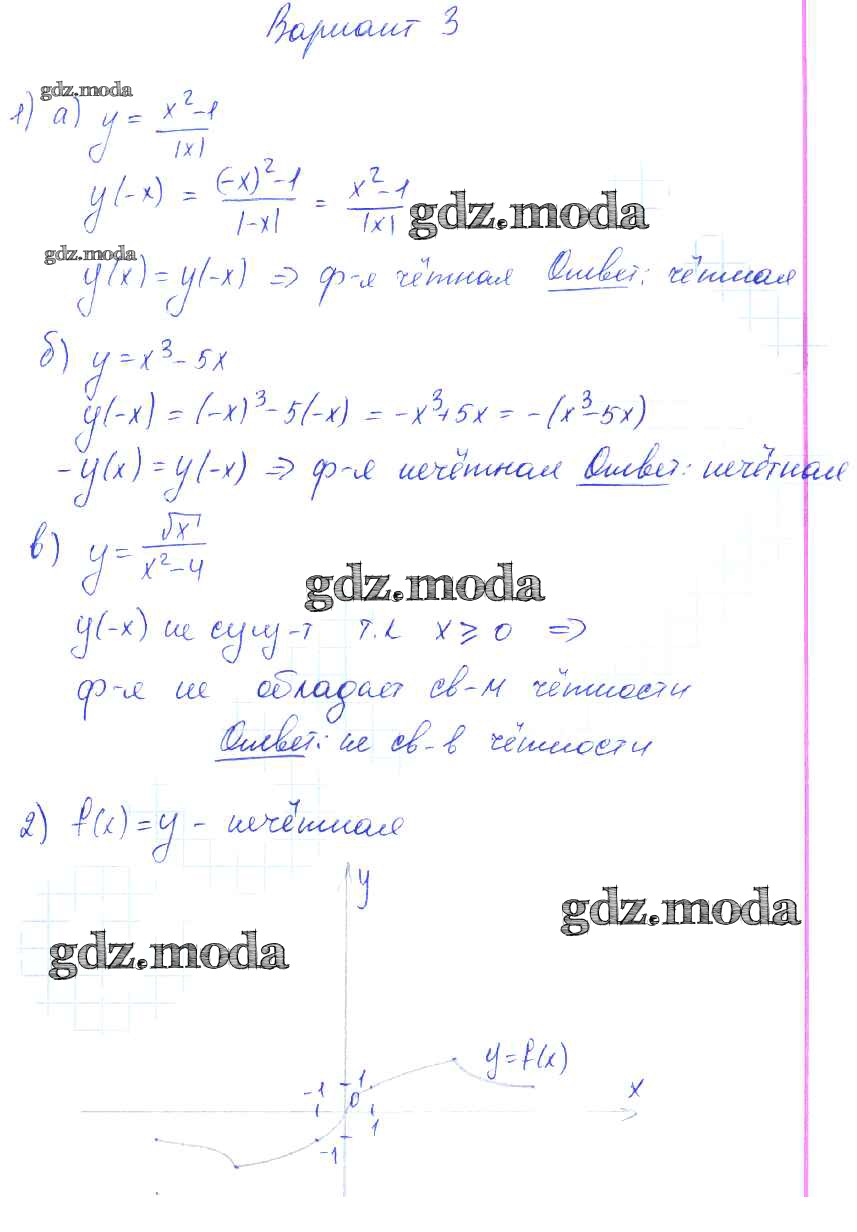 Вариант 3
gdz.moda
1) а) y = x²-1 / |x|
y(-x) = (-x)²-1 / |-x| = x²-1 / |x|
gdz.moda
gdz.moda
y(x) = y(-x) => ф-я чётная Ответ: чётная
б) y = x³ - 5x
y(-x) = (-x)³ - 5(-x) = -x³+5x = -(x³-5x)
-y(x) = y(-x) => ф-я нечётная Ответ: нечётная
в) y = √x / x²-4
gdz.moda
y(-x) не сущ-т т.к x ⩾ 0 =>
ф-я не обладает св-м чётности
Ответ: не св-в чётности
2) f(x) = y - нечётная
y
gdz.moda
gdz.moda
y=f(x)
-1 1 x
0
1
-1